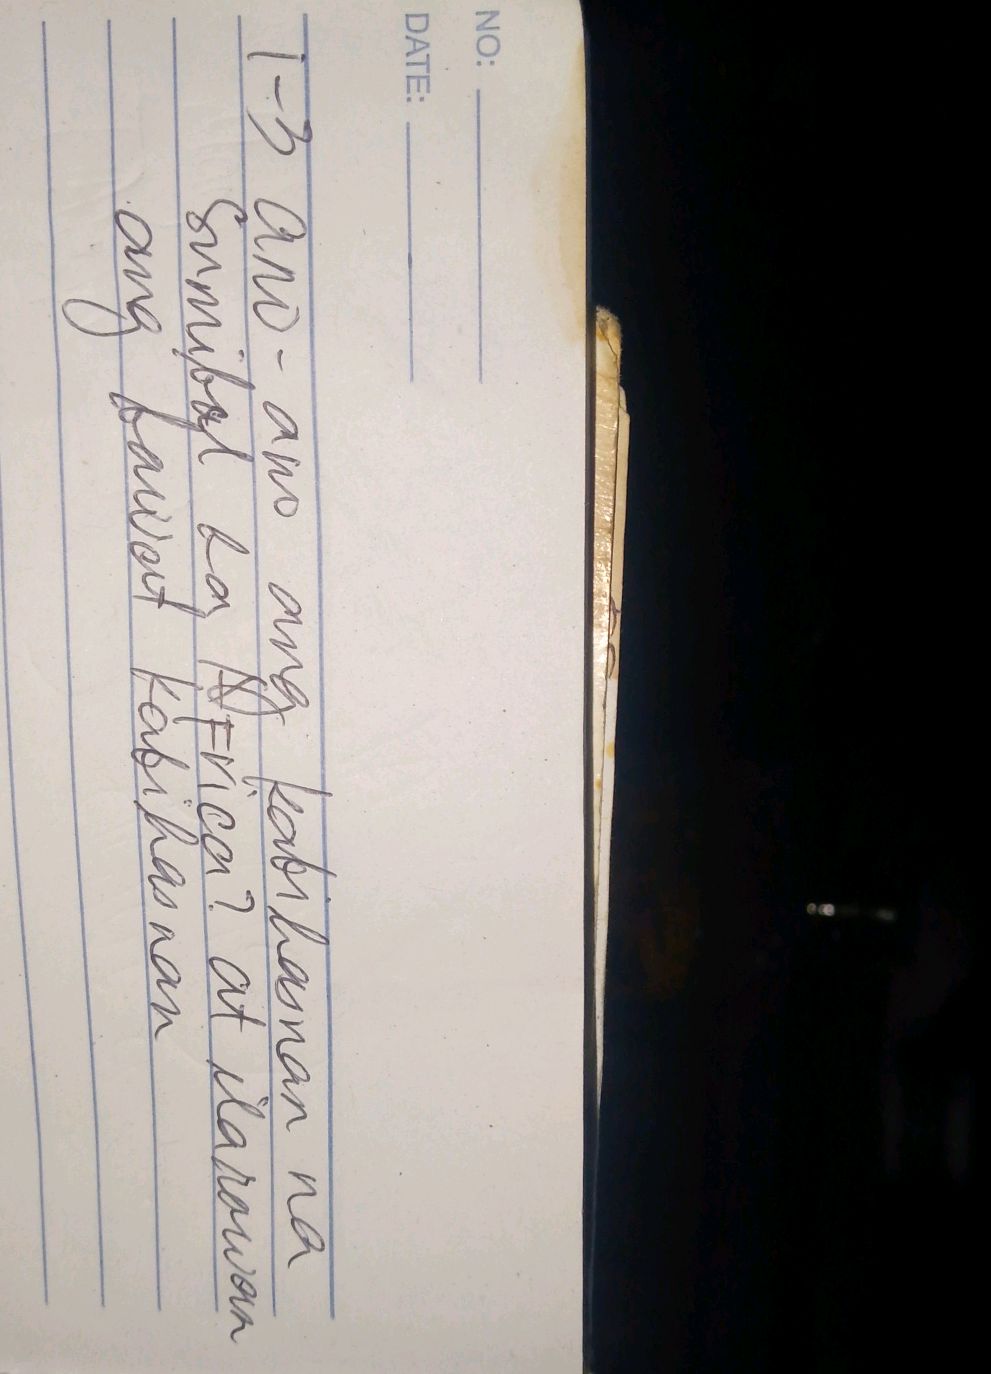 NO:
DATE:
1-3 ano-ano ang kabihasnan na
Sumibol sa Africa? at ilarawan
ang bawat kabihasnan